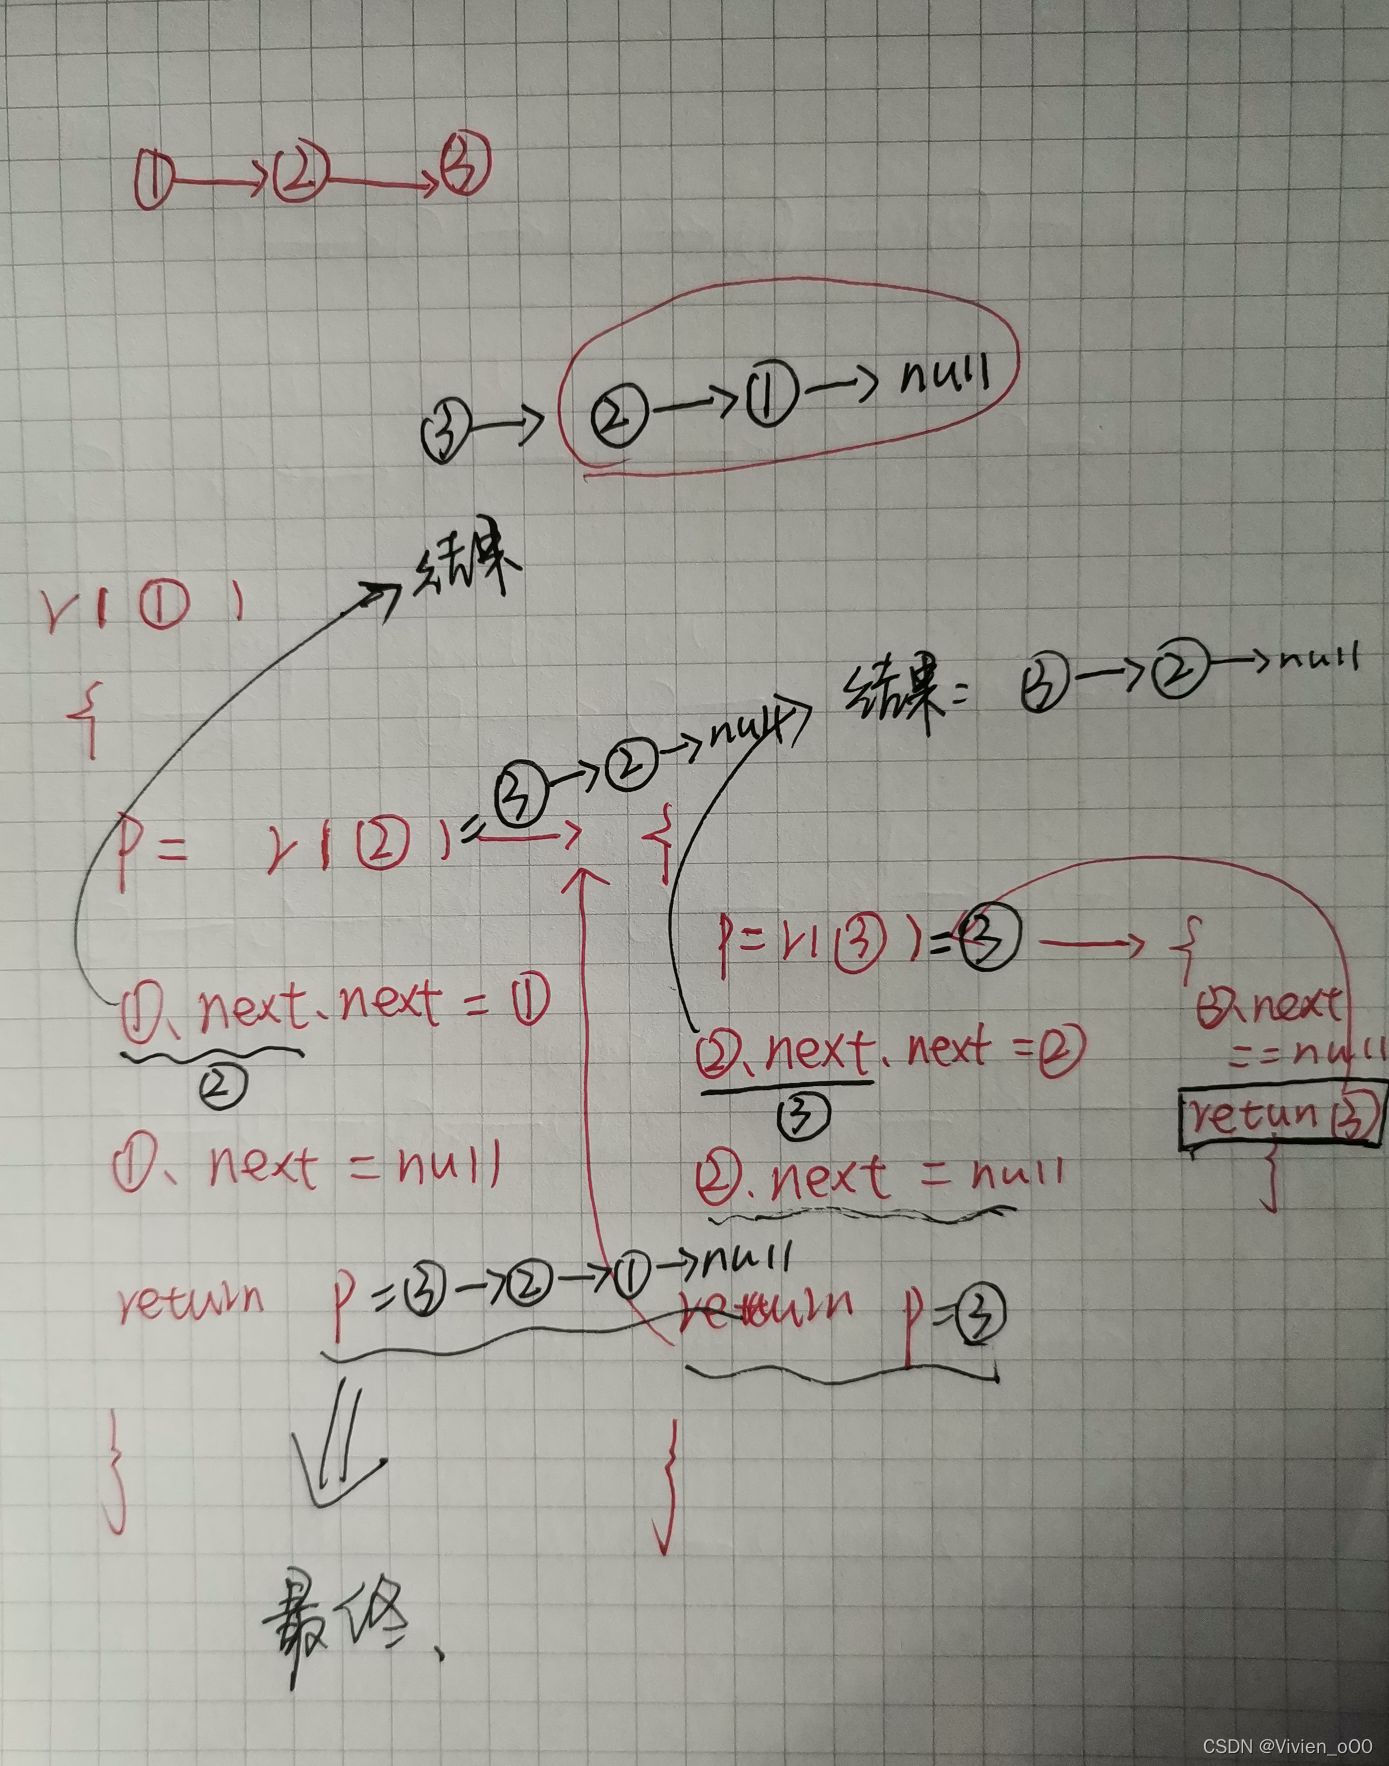 ① → ② → ③
③ → ② → ① → null
结果
r(①)
{
结果: ③ → ② → null
③ → ② → null
p = r(②) = → {
p = r(③) = ③ → {
①.next.next = ①
③.next
②
== null
②.next.next = ②
③
retun ③
①.next = null
②.next = null
}
return p = ③ → ② → ① → null
return p = ③
}
}
最终、
CSDN @Vivien_oOO